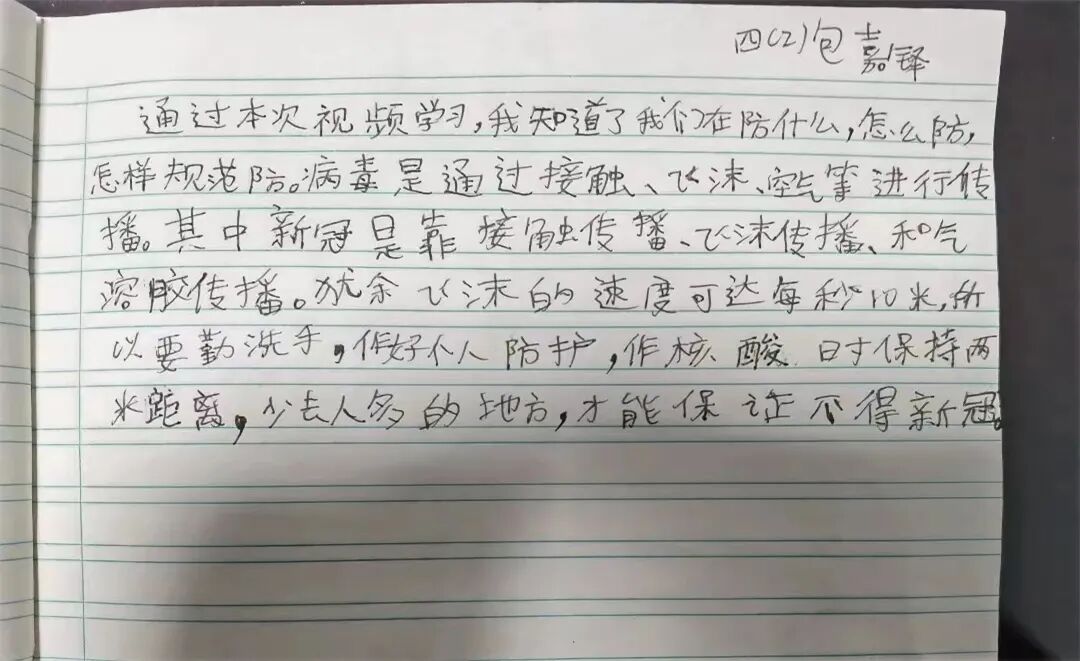 四(2)包嘉铎
通过本次视频学习,我知道了我们在防什么,怎么防,
怎样规范防。病毒是通过接触、飞沫、空气等进行传
播。其中新冠是靠接触传播、飞沫传播、和气
溶胶传播。犹余飞沫的速度可达每秒10米,所
以要勤洗手,作好个人防护,作核酸时保持两
米距离,少去人多的地方,才能保证不得新冠。